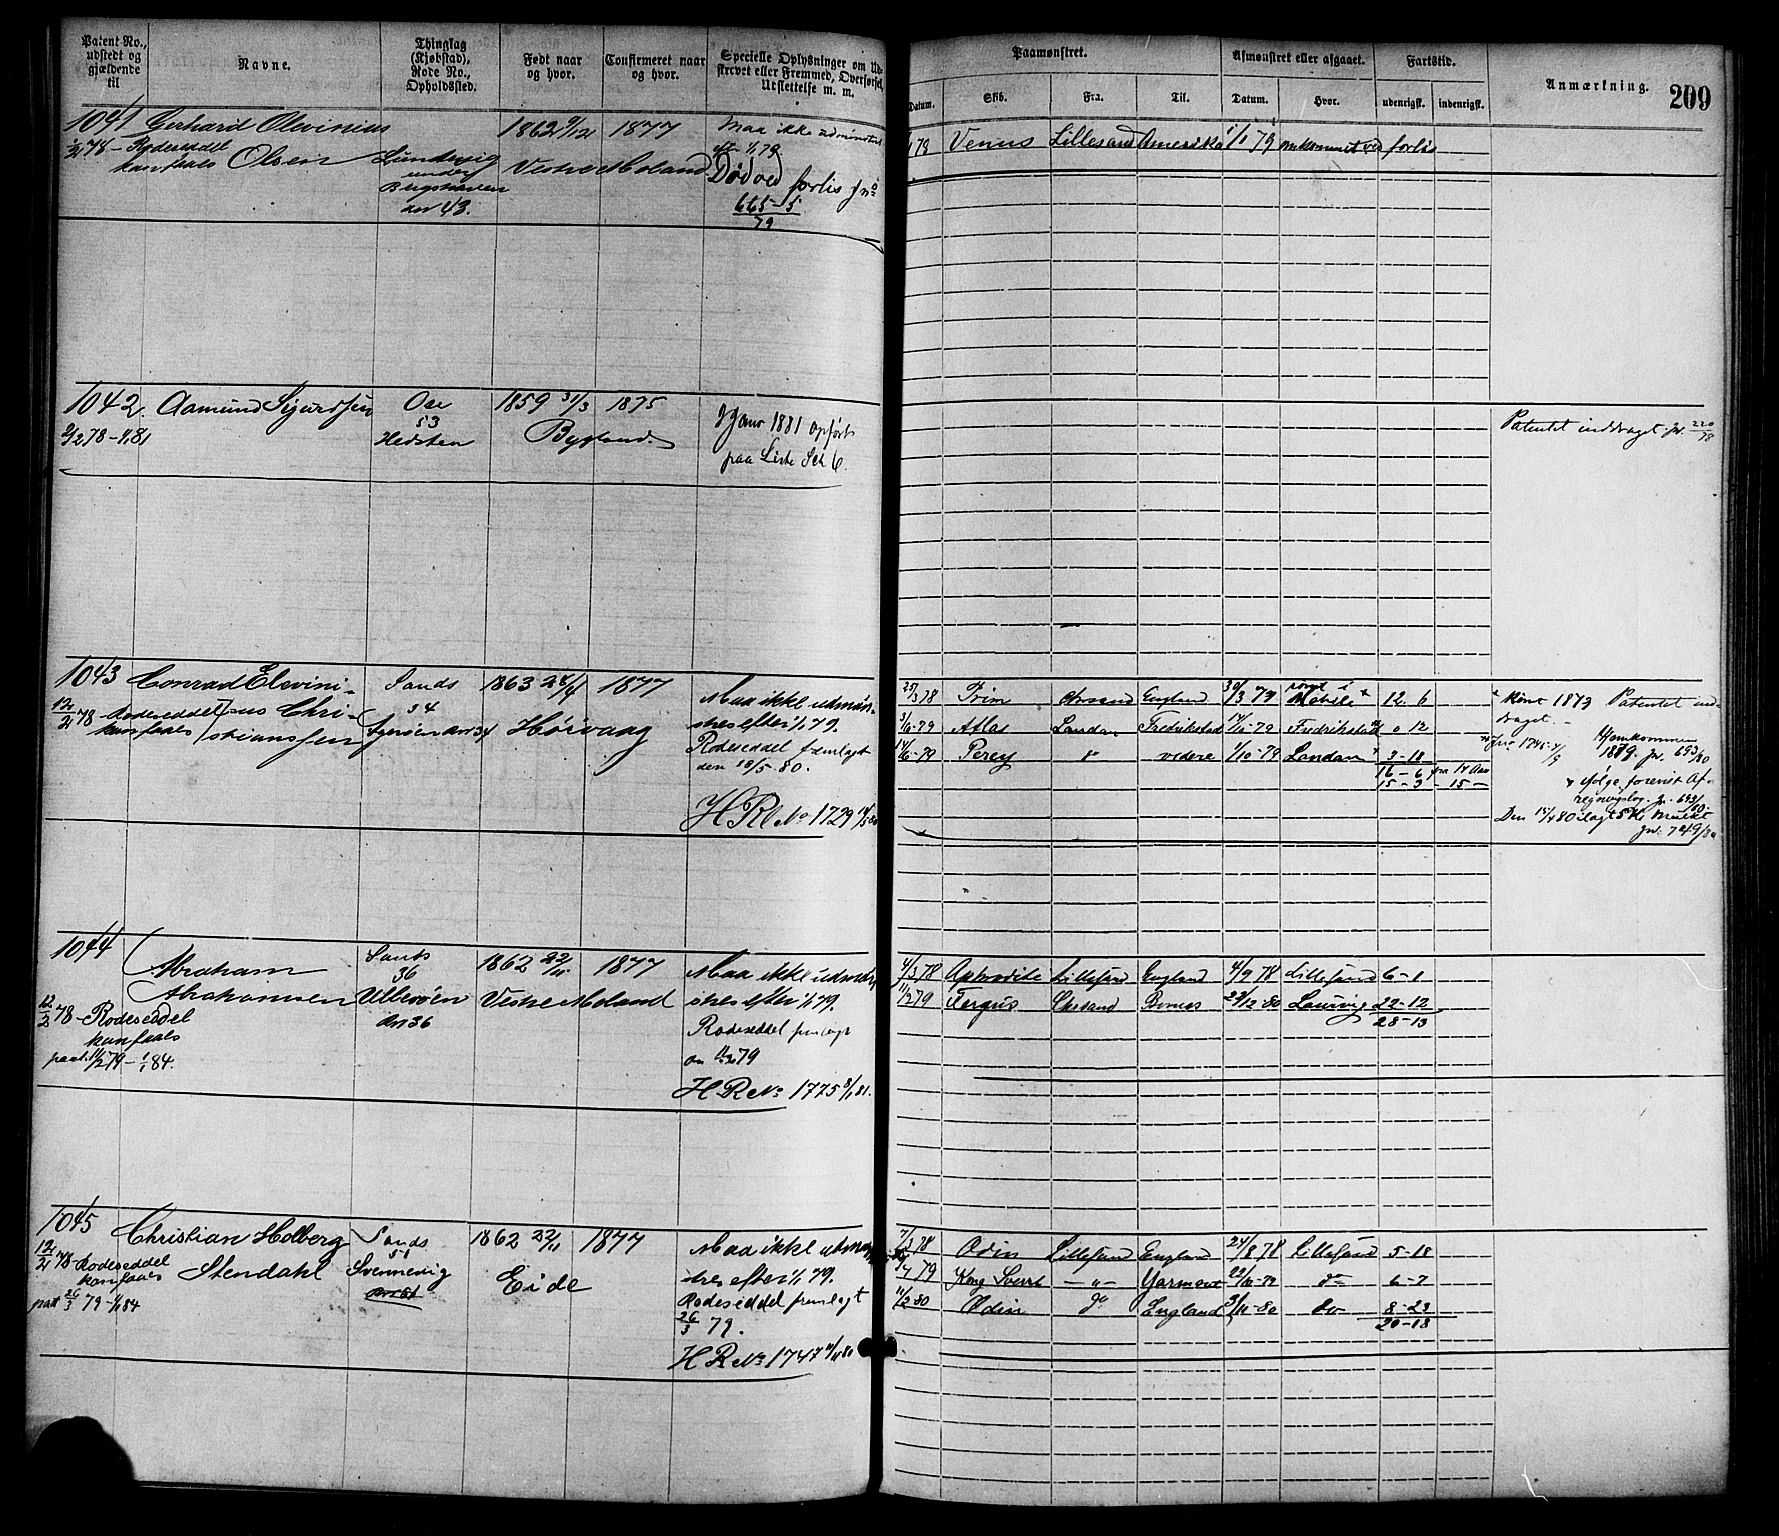 Patent-No., udstedt og gjældende til
Navne.
Thinglag (Kjøbstad), Rode No., Opholdssted.
Født naar og hvor.
Confirmeret naar og hvor.
Specielle Oplysninger om Ud-
skrevet eller Fremmed, Overførsel,
Udslettelse m. m.
Paamønstret.
Datum.
Skib.
Fra.
Til.
Afmønstret eller afgaaet.
Datum.
Hvor.
Fartstid.
udenrigsk.
indenrigsk.
Anmærkning.
209
1041 Gerhard Olevinius
Olsen
Rodeseddel
kan faaes
Lundevig
under
An 43.
1862 9/12 1877
Vestre Moland
Maa ikke udmønstres
eft 1/1 79
Død ved forlis J no
665-5
79
78 Venus Lillesand Amerika 1/1 79 omkommet ved forlis
1042. Aamund Sjurdsen
2/2 78 - 1/1 81
Ose
53
Hedsten
1859 31/3 1875
Bygland
Janr 1881 opført
paa Liste Sch 6.
Patentet inddraget. Jr. 220/78
1043 Conrad Elevini-
us Chri-
stianssen
12/2 78 Rodeseddel
kan faaes
Sands
34
Agerøen An 34
1863 24/4 1877
Høivaag
Maa ikke udmøn-
stres efter 1/1 79.
Rodeseddel fremlagt
den 18/5-80.
H R No 1729
25/3 78 Trim Arsand England 30/3 79 rømt i Mobile + 12. 6
3/6-79 Atlas London Fredrikstad 12/6-79 Fredrikstad 0 12
14/6-79 Percy do videre 1/10-79 London + 3-18
16-6
15-3 - 15 -
Rømt 1873 Patentet ind-
draget. -
Hjemkommen
1879. Jr. 693/80
ifølge forevist Af-
regningsbog. Jr. 693/80.
Den 15/4 80 ilagt 5 Kr Mulkt
Jr. 749/80
1044
Abraham
Abrahamsen
12/2 78 - Rodeseddel
kan faaes
pat. 11/2 79 - 1/1 84.
Sands
36
Ulleøen
An 36
1862 22/11 1877
Vestre Moland
Maa ikke udmøn-
stres efter 1/1 79.
Rodeseddel fremlagt
11/2 79
H R No 1775 8/1 81.
4/3 78 Aphrodite Lillesand England 4/9 78 Lillesand 6-1
11/2 79 Fergus Chrsand Bones 29/12-80 Laurvig 22-12
28-13
1045 Christian Holberg
Stendahl
12/2 78 - Rodeseddel
kan faaes
pat 26/3 79 - 1/1 84
Sands
51
Svennevig
An 51
1862 22/11 1877
Eide
Maa ikke udmøn-
stres efter 1/1 79.
Rodeseddel fremlagt
26/3 79.
H R No 1747
7/3 78 Odin Lillesand England 24/8 78 Lillesand 5-18
4 79 Kong Sverre - " - Yarmout 22/10-79 do 6-7
11/2 80 Odin do England 3/11-80 do 8-23
20-18